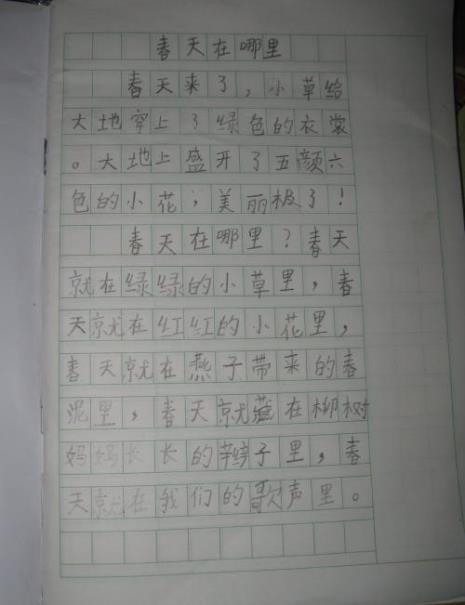 春天在哪里
春天来了，小草给
大地穿上了绿色的衣裳
。大地上盛开了五颜六
色的小花，美丽极了！
春天在哪里？春天
就在绿绿的小草里，春
天就在红红的小花里，
春天就在燕子带来的春
泥里，春天就藏在柳树
妈妈长长的辫子里，春
天就在我们的歌声里。